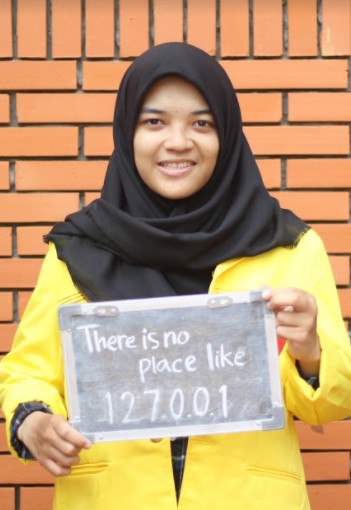 There is no
place like
127.0.0.1